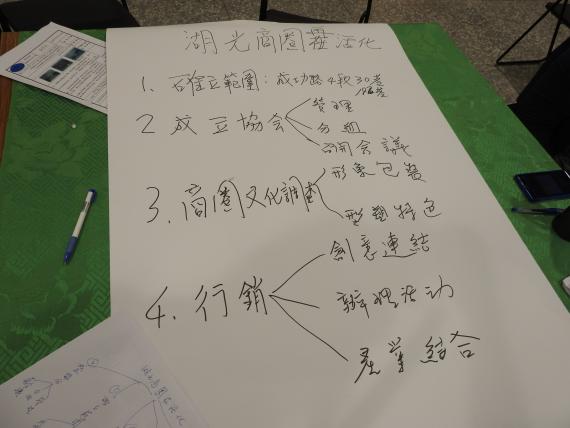 湖光商圈 活化
1. 確立範圍:成功路4段30巷
2 成立協會
管理
分組
召開會議
3. 商圈文化調查
形象包裝
形塑特色
4. 行銷
創意連結
辦理活動
產業結合